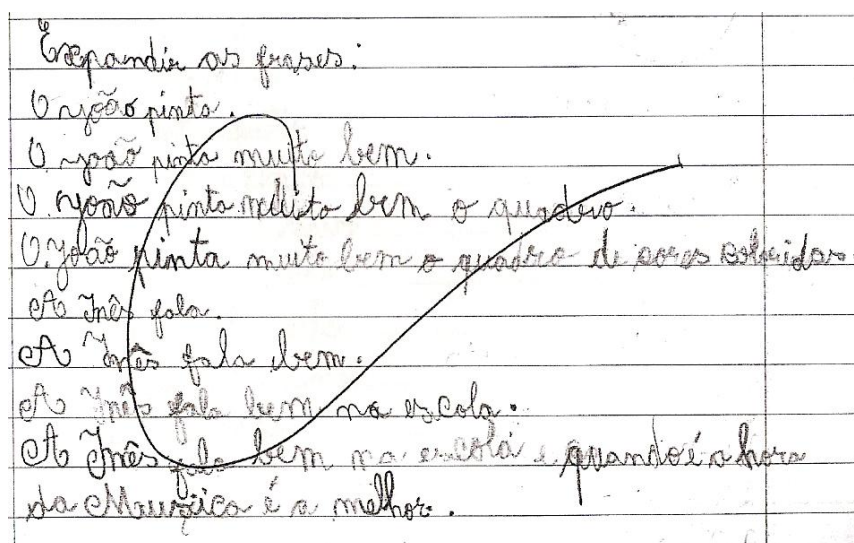 Expandir as frases:
O João pinta.
O João pinta muito bem.
O João pinta muito bem o quadro.
O João pinta muito bem o quadro de cores coloridas.
A Inês fala.
A Inês fala bem.
A Inês fala bem na escola.
A Inês fala bem na escola e quando é a hora
da é a melhor.